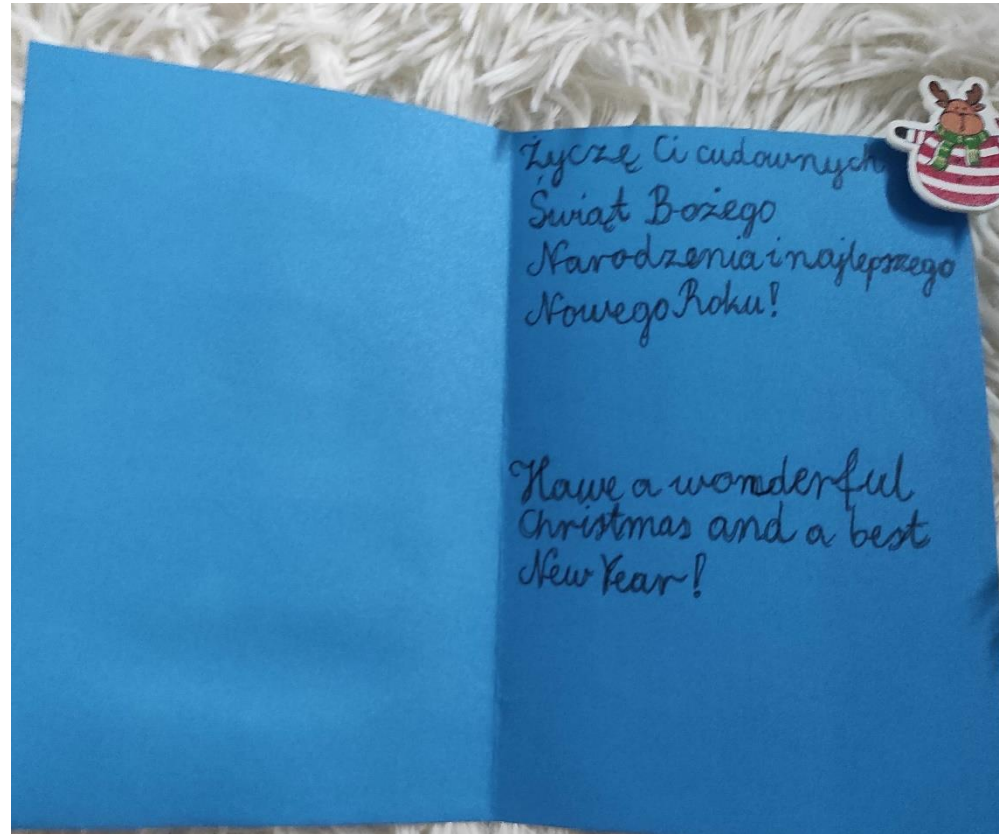 Życzę Ci cudownych
Świąt Bożego
Narodzenia i najlepszego
Nowego Roku!
Hawe a wonderful
Christmas and a best
New Year!